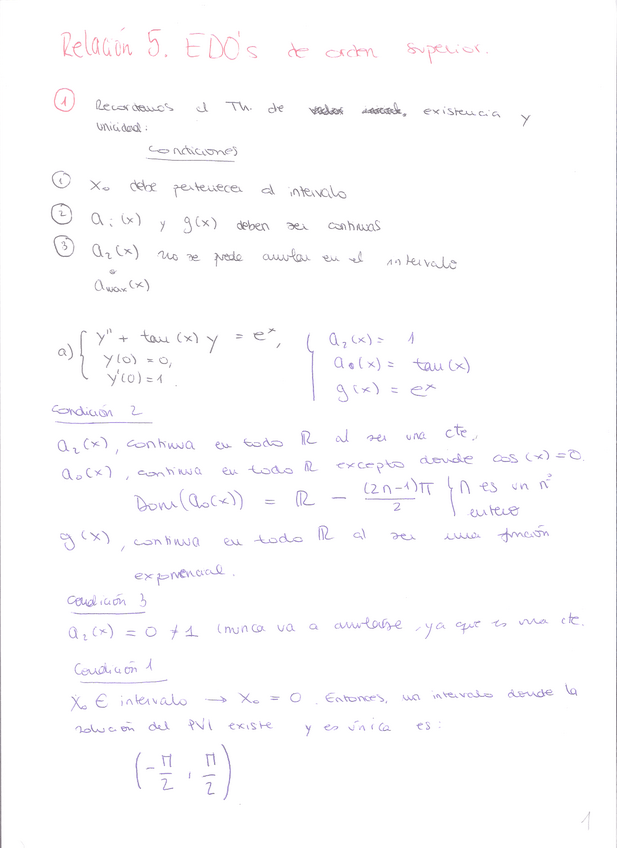 Relación 5. EDO's de orden superior.
① Recordamos el Th. de existencia y
unicidad:
Condiciones
① X₀ debe pertenecer al intervalo
② aᵢ(x) y g(x) deben ser continuas
③ a₂(x) no se puede anular en el intervalo
ó
a_max(x)
a) { y'' + tan(x) y = eˣ, { a₂(x) = 1
y(0) = 0, a₀(x) = tan(x)
y'(0) = 1. g(x) = eˣ
Condición 2
a₂(x), continua en todo ℝ al ser una cte.
a₀(x), continua en todo ℝ excepto donde cos(x)=0.
Dom(a₀(x)) = ℝ - (2n-1)π/2 { n es un nº
entero
g(x), continua en todo ℝ al ser una función
exponencial.
Condición 3
a₂(x) = 0 ≠ 1 (nunca va a anularse, ya que es una cte.
Condición 1
X₀ ∈ intervalo → X₀ = 0. Entonces, un intervalo donde la
solución del PVI existe y es única es:
(-π/2, π/2)
1